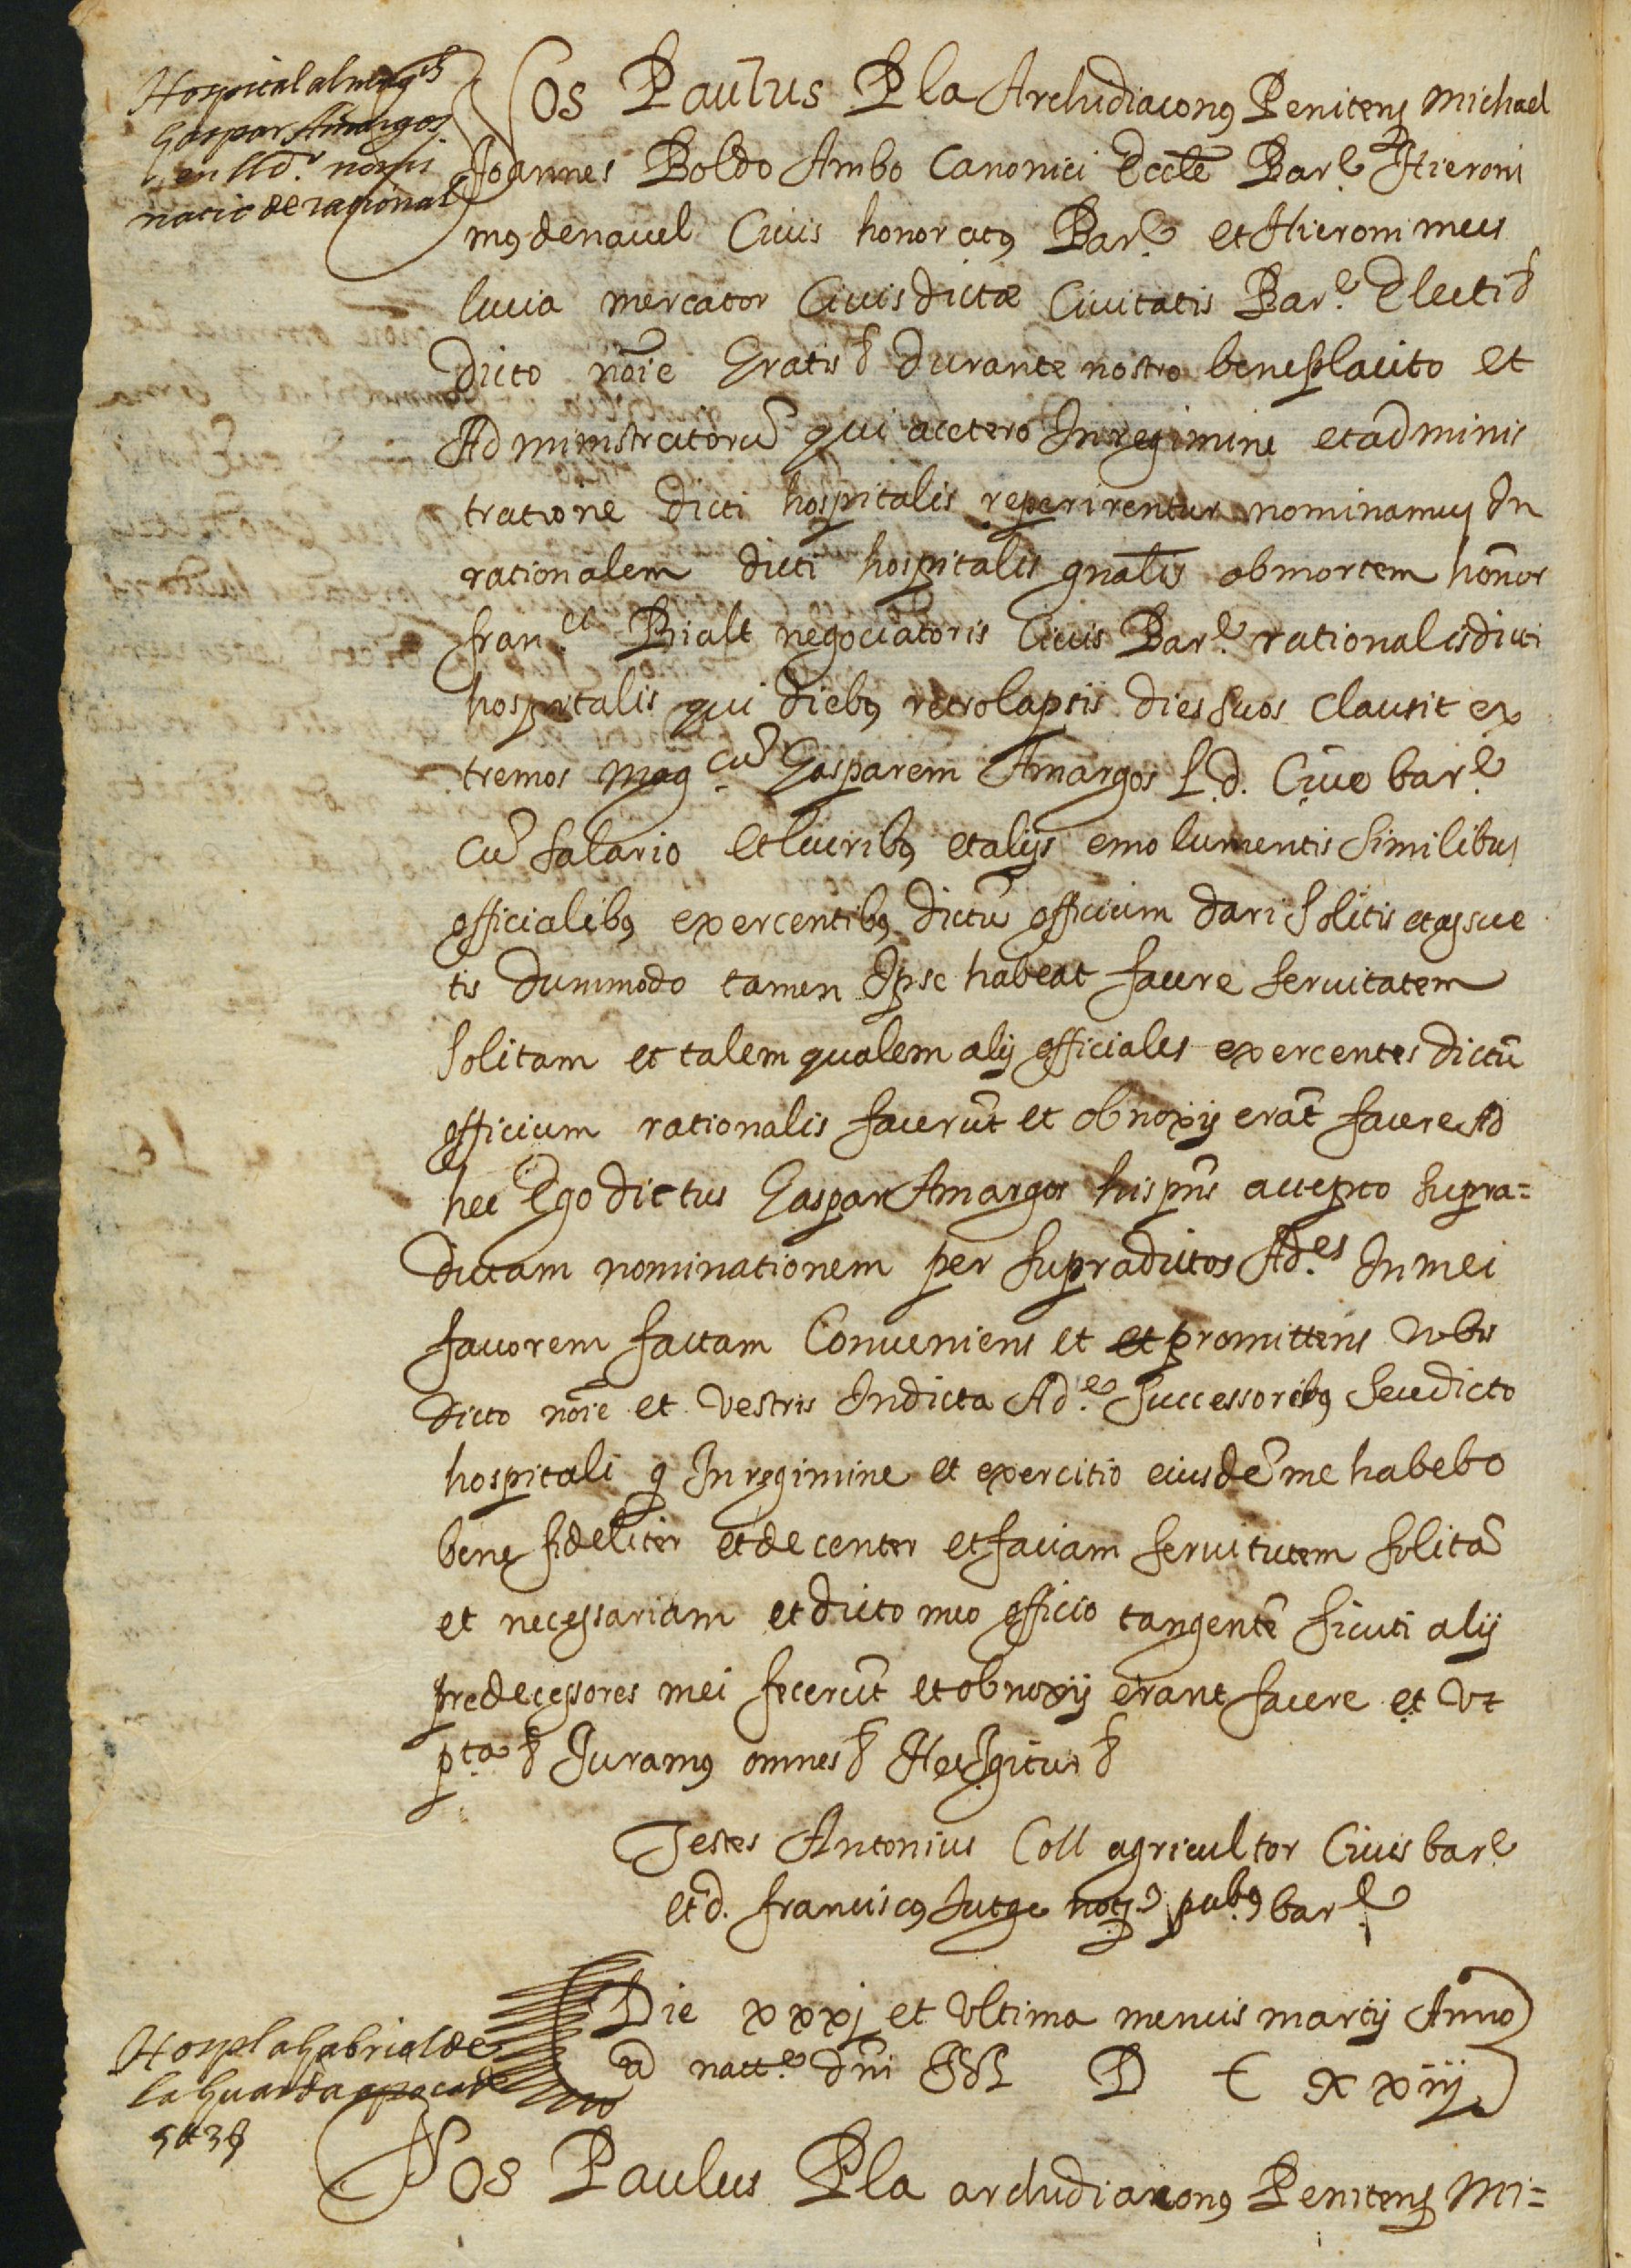 Hospital al mag.ch
Gaspar Amargos
en ll d.r nomi
natio de rational
Nos Paulus Pla Archidiaconus Penitens Michael
Joannes Boldo Ambo Canonici Eccle Bar.e Hieroni
mus denavel Civis honoratus Bar.e et Hieronimus
lucia mercator Civis dictæ Civitatis Bar.e Electi
dicto noie Gratis durante nostro beneplacito et
Administratorũ qui acetero In regimine et adminis
tratione dicti hospitalis reperirentur nominamus In
rationalem dicti hospitalis gnalis ob mortem honor
fran.ci Rialt negociatoris Civis Bar.e rationalis dicti
hospitalis qui diebus retrolapsis dies suos clausit ex
tremos mag.cũ Gasparem Amargos l.d. Cive bar.e
cũ salario et lucribus et alijs emolumentis similibus
officialibus exercentibus dictũ officium dari solitis et assue
tis dummodo tamen Ipse habeat facere servitatem
solitam et talem qualem alij officiales exercentes dictũ
officium rationalis facerũt et obnoxij erãt facere Ad
hec Ego dictus Gaspar Amargos his pns accepto supra=
dictam nominationem per supradictos Ad.es In mei
favorem factam Conveniens et et promittens vobis
dicto noie et vestris In dicta Ad.e successoribus seu dicto
hospitali q In regimine et exercitio eiusdẽ me habebo
bene fideliter et decenter et faciam servitutem solitã
et necessariam et dicto meo officio tangentẽ sicuti alij
predecessores mei fecerũt et obnoxij erant facere et vt
p.ta Juramus omnes Hec Igitur
Testes Antonius Coll agricultor Civis bar.e
et d. franciscus Jutge not.s pub.s bar.e
Hospl a Gabriel de
la Guarda apoca de
Die xxxj et vltima mencis martij Anno
a nat.e dni M D C xxiij
Nos Paulus Pla archidiaconus Penitens Mi=